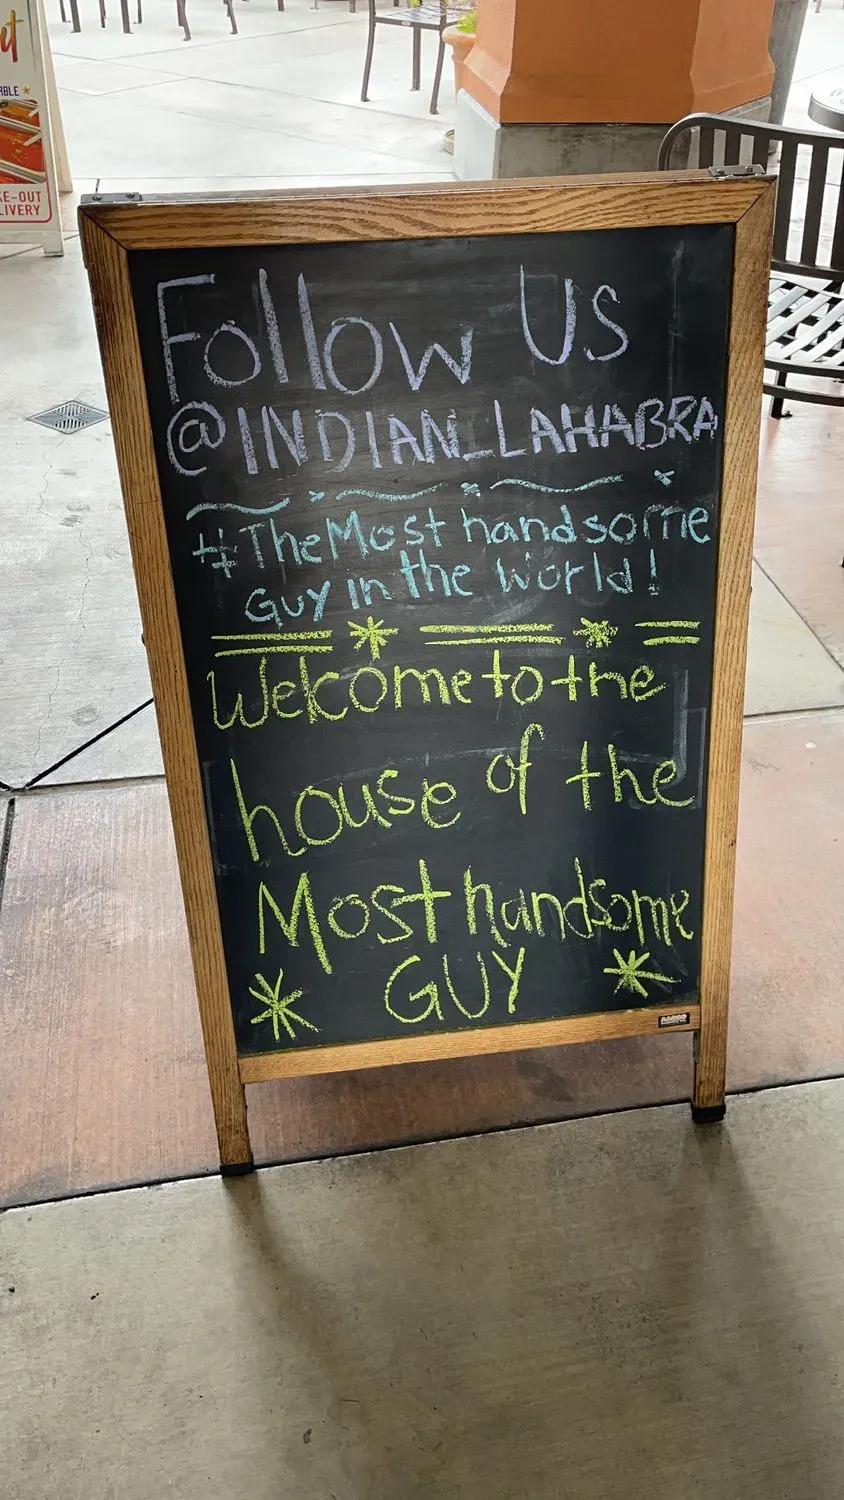 Follow Us
@INDIAN_LAHABRA
#TheMost handsome
Guy in the World!
Welcome to the
house of the
Most handsome
GUY
KE-OUT
LIVERY